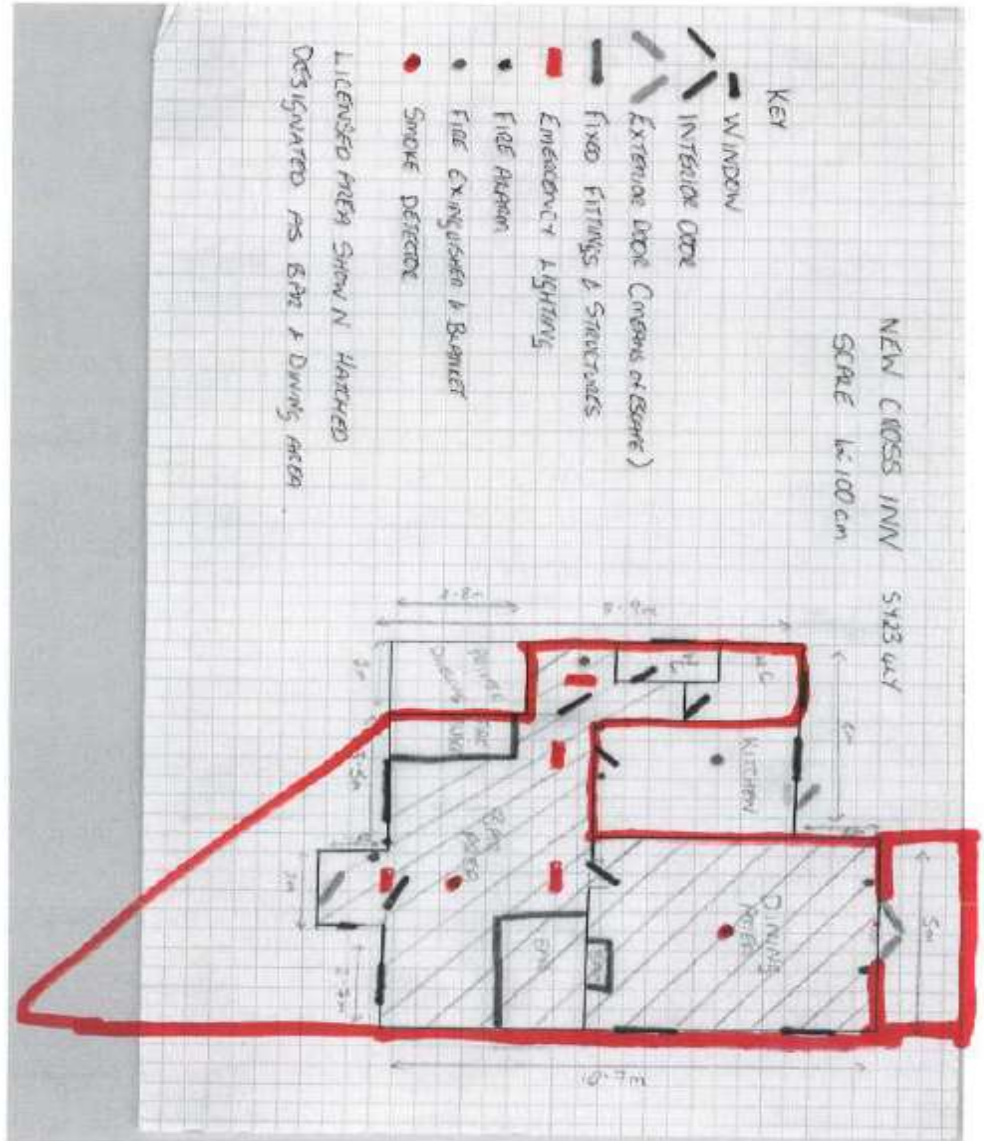 NEW CROSS INN SY23
SCALE
KEY
WINDOW
INTERIOR DOOR
EXTERIOR DOOR (MEANS OF ESCAPE)
FIXED FITTINGS & STRUCTURES
EMERGENCY LIGHTING
FIRE ALARM
FIRE EXINGUISHER & BLANKET
SMOKE DETECTOR
LICENSED AREA SHOWN HATCHED
DESIGNATED AS BAR & DINING AREA
WC
KITCHEN
5m
4m
DINING AREA
BAR AREA
BAR
PRIVATE
3.5m
2m
10.7m